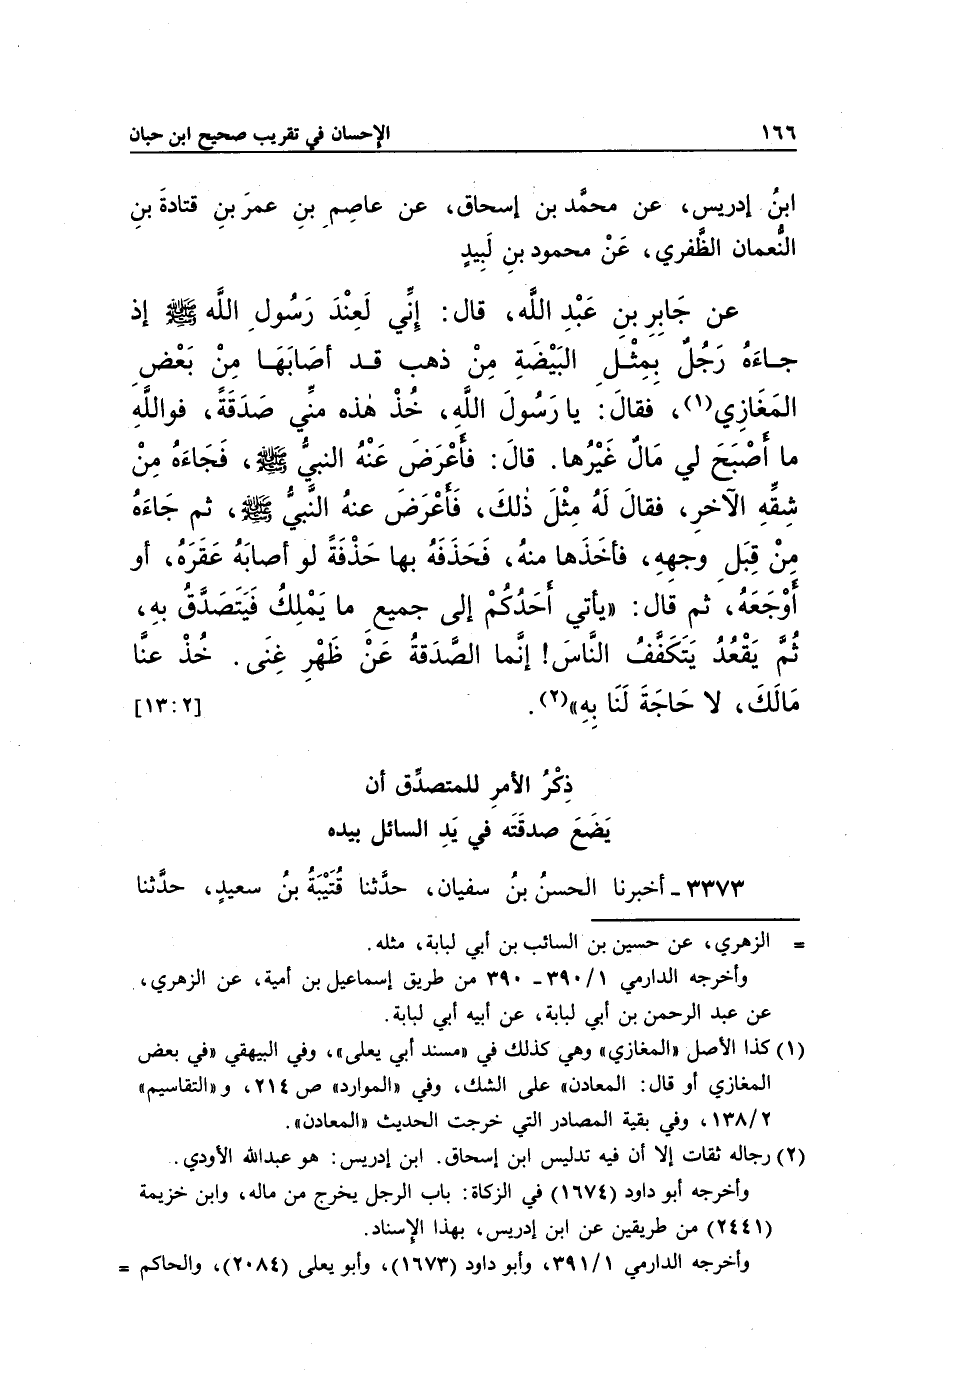 ١٦٦ الإحسان في تقريب صحيح ابن حبان
ابنُ إدريس، عن محمَّد بن إسحاق، عن عاصِمِ بنِ عمرَ بنِ قتادةَ بنِ
النُّعمان الظَّفري، عَنْ محمود بنِ لَبِيدٍ
عن جَابِرِ بنِ عَبْدِ اللَّه، قال: إِنِّي لَعِنْدَ رَسُولِ اللَّه ﷺ إذ
جاءَهُ رَجُلٌ بِمِثْلِ البَيْضَةِ مِنْ ذهب قد أصَابَهَا مِنْ بَعْضِ
المَغَازِي(١)، فقالَ: يا رَسُولَ اللَّهِ، خُذْ هٰذه منِّي صَدَقَةً، فواللَّهِ
ما أَصْبَحَ لي مَالٌ غَيْرُها. قالَ: فأَعْرَضَ عَنْهُ النبيُّ ﷺ، فَجَاءَهُ مِنْ
شِقِّهِ الآخرِ، فقالَ لَهُ مِثْلَ ذٰلكَ، فَأَعْرَضَ عنهُ النَّبيُّ ﷺ، ثم جَاءَهُ
مِنْ قِبَلِ وجهِهِ، فأخَذَها منهُ، فَحَذَفَهُ بها حَذْفَةً لو أصابَهُ عَقَرَهُ، أو
أَوْجَعَهُ، ثم قال: «يأتي أَحَدُكُمْ إلى جميعِ ما يَمْلِكُ فَيَتَصَدَّقُ بِهِ،
ثُمَّ يَقْعُدُ يَتَكَفَّفُ النَّاسَ! إنَّما الصَّدَقةُ عَنْ ظَهْرِ غِنَى. خُذْ عنَّا
مَالَكَ، لا حَاجَةَ لَنَا بِهِ»(٢). [٢: ١٣]
ذِكْرُ الأمرِ للمتصدِّق أن
يَضَعَ صدقَتَه في يَدِ السائل بيده
٣٣٧٣ ـ أخبرنا الحسنُ بنُ سفيان، حدَّثنا قُتَيْبَةُ بنُ سعيدٍ، حدَّثنا
= الزهري، عن حسين بن السائب بن أبي لبابة، مثله.
وأخرجه الدارمي ١/ ٣٩٠ـ ٣٩٠ من طريق إسماعيل بن أمية، عن الزهري،
عن عبد الرحمن بن أبي لبابة، عن أبيه أبي لبابة.
(١) كذا الأصل «المغازي» وهي كذلك في «مسند أبي يعلى»، وفي البيهقي «في بعض
المغازي أو قال: المعادن» على الشك، وفي «الموارد» ص ٢١٤، و«التقاسيم»
٢/ ١٣٨، وفي بقية المصادر التي خرجت الحديث «المعادن».
(٢) رجاله ثقات إلا أن فيه تدليس ابن إسحاق. ابن إدريس: هو عبدالله الأودي.
وأخرجه أبو داود (١٦٧٤) في الزكاة: باب الرجل يخرج من ماله، وابن خزيمة
(٢٤٤١) من طريقين عن ابن إدريس، بهذا الإسناد.
وأخرجه الدارمي ١/ ٣٩١، وأبو داود (١٦٧٣)، وأبو يعلى (٢٠٨٤)، والحاكم =